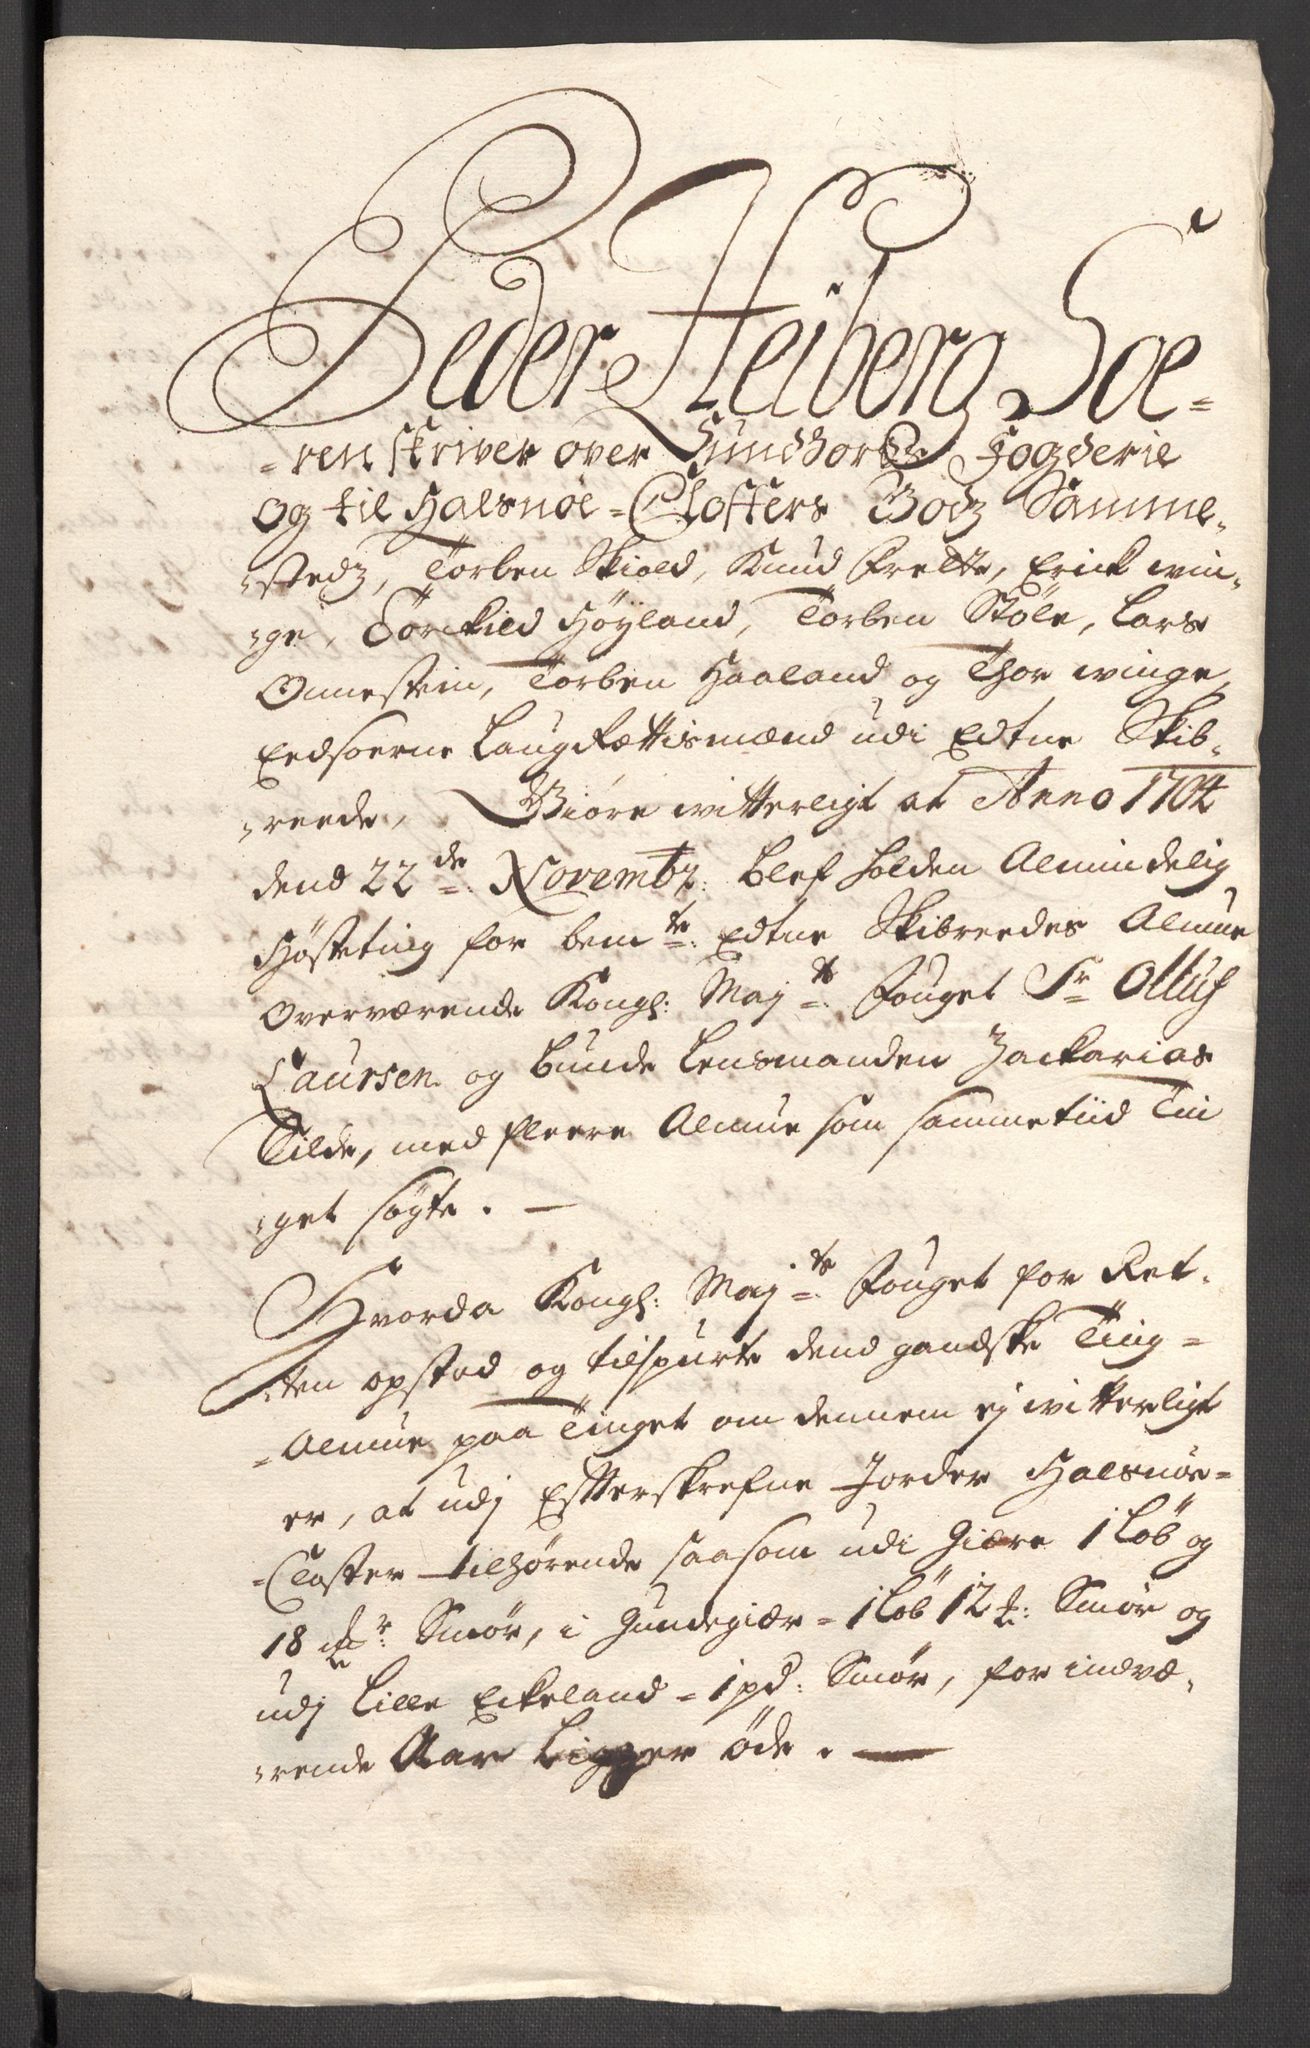 Peder Heiberg Soe-
-ren skriver over Sundhorlz Fogderie
og til Halsnøe-Closters Godz Samme-
-stedz, Torben Skiold, Knud Frette, Erick win-
-ge, Törckild Høyland, Torben Støle, Lars
Onnestein, Torben Haaland og Thor winge,
Eedsoerne Laugrættismænd udi Edtne Skib-
-reede, Giøre witterligt at Anno 1704
dend 22de Novembr: blef holden Almindelig
Høsteting for bemte: Edtne Skibreedes Almue
Overværende Kongl: Majts: Fouget Sr Olluf
Laursen og bunde Lensmanden Zackarias
Tilde, med fleere Almue som sammetiid Tin
-get søgte. —
Hvorda Kongl: Majts: Fouget for Ret-
-ten opstod og tilspurte dend gandske Ting-
-Almue paa Tinget om dennem ej witterligt
er, at udj Effterskrefne Jorder Halsnøe-
-Closter tilhørende saasom udi Giære 1 Løb og
18 mkr: Smør, i Gundegiær - 1 Løb 12 mk: Smør og
udj Lille Eckeland - 1 pd: Smør, for indvæ-
-rende Aar Ligger øde. —